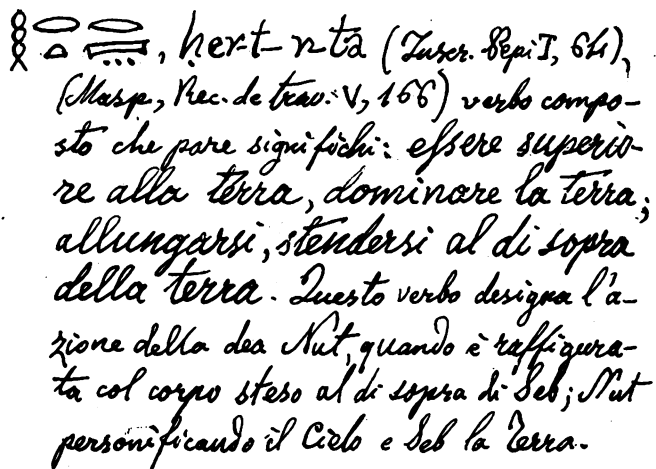 𓎛𓂋𓏏𓈖𓇾, ḥer-t-n-ta (Inscr. Pepi I, 64),
(Masp., Rec. de trav. V, 166) verbo compo-
sto che pare significhi: essere superio-
re alla terra, dominare la terra;
allungarsi, stendersi al di sopra
della terra. Questo verbo designa l'a-
zione della dea Nut, quando è raffigura-
ta col corpo steso al di sopra di Seb; Nut
personificando il Cielo e Seb la Terra.